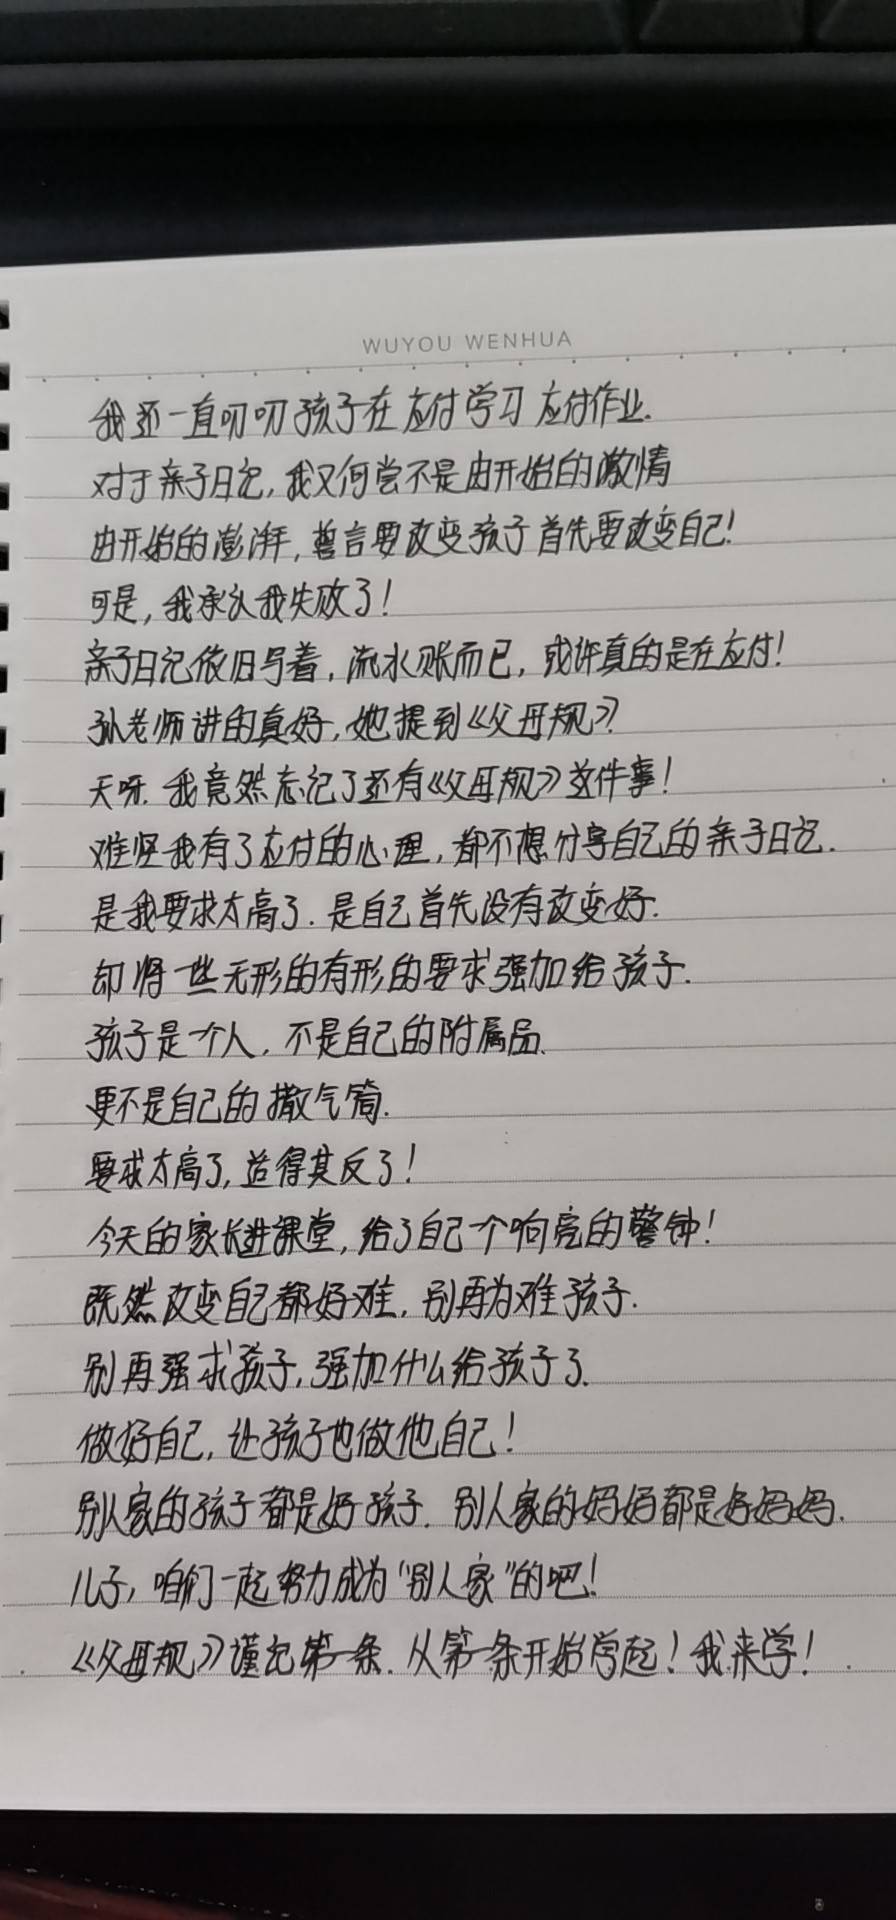 WUYOU WENHUA
我还一直叨叨孩子在应付学习应付作业.
对于亲子日记,我又何尝不是由开始的激情
由开始的澎湃,誓言要改变孩子首先要改变自己!
可是,我承认我失败了!
亲子日记依旧写着,流水账而已,或许真的是在应付!
孙老师讲的真好,她提到《父母规》?
天呀.我竟然忘记了还有《父母规》这件事!
难怪我有了应付的心理,都不想分享自己的亲子日记.
是我要求太高了.是自己首先没有改变好.
却将一些无形的有形的要求强加给孩子.
孩子是个人,不是自己的附属品.
更不是自己的撒气筒.
要求太高了,适得其反了!
今天的家长进课堂,给了自己一个响亮的警钟!
既然改变自己都好难,别再为难孩子.
别再强求孩子,强加什么给孩子了.
做好自己,让孩子也做他自己!
别人家的孩子都是好孩子.别人家的妈妈都是好妈妈.
儿子,咱们一起努力成为“别人家”的吧!
《父母规》谨记第一条.从第一条开始学起!我来学!